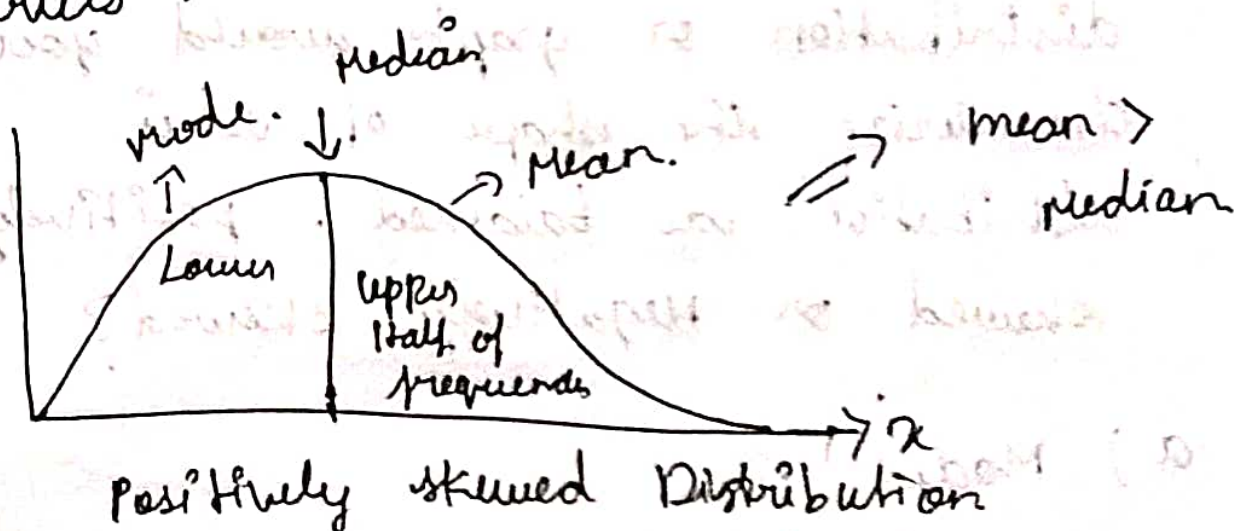 Median
mode.
Mean.
mean >
Median
Lower
Upper
Half of
frequends
x
Positively skewed Distribution